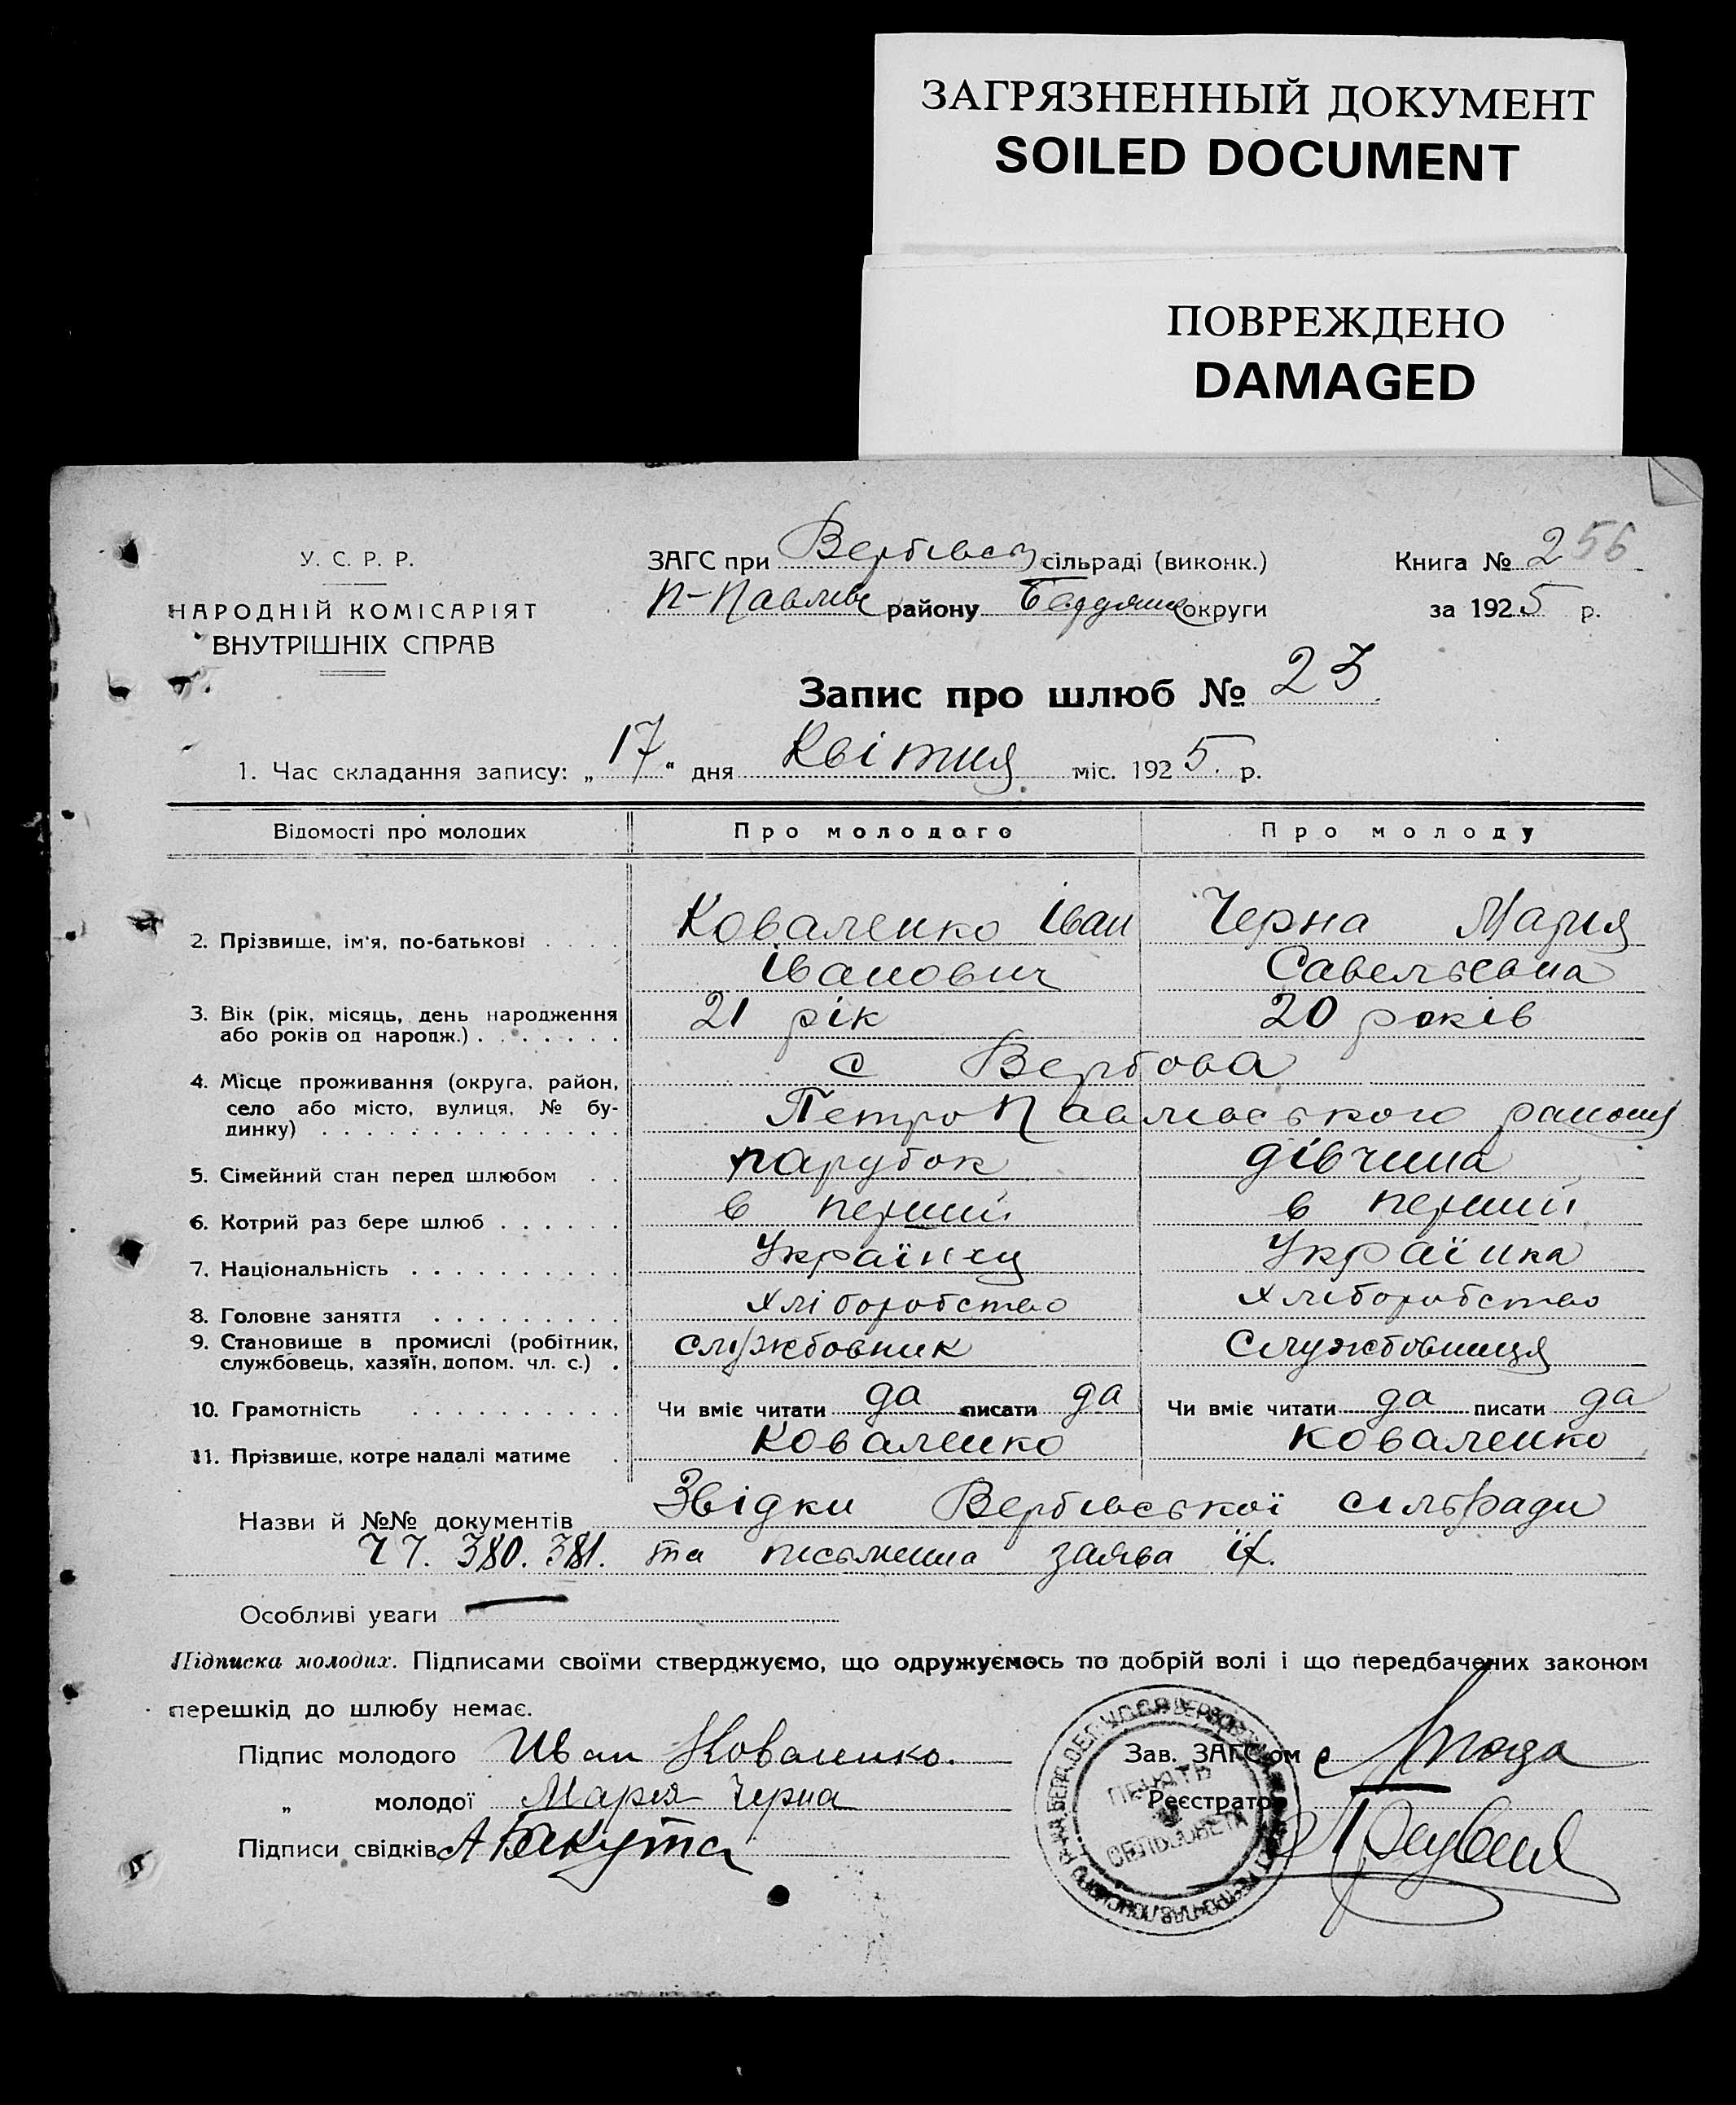 ЗАГРЯЗНЕННЫЙ ДОКУМЕНТ
SOILED DOCUMENT
ПОВРЕЖДЕНО
DAMAGED
У. С. Р. Р.
НАРОДНІЙ КОМІСАРІЯТ
ВНУТРІШНІХ СПРАВ
ЗАГС при Вербівск сільраді (виконк.)
П-Павлів району Бердянс округи
Книга № 2 56
за 1925 р.
Запис про шлюб № 23
1. Час складання запису: „ 17 “ дня Квітня міс. 1925. р.
Відомості про молодих Про молодого Про молоду
2. Прізвище, ім'я, по-батькові Коваленко Іван Черна Мария
Іванович Савельевна
3. Вік (рік, місяць, день народження 21 рік 20 років
або років од народж.)
4. Місце проживання (округа, район, с Вербова
село або місто, вулиця, № бу- Петро Павлівського району
динку)
5. Сімейний стан перед шлюбом парубок дівчина
6. Котрий раз бере шлюб в перший в перший
7. Національність Українец Українка
8. Головне заняття Хліборобство Хліборобство
9. Становище в промислі (робітник, службовник Службовниця
службовець, хазяїн, допом. чл. с.)
10. Грамотність Чи вміє читати да писати да Чи вміє читати да писати да
11. Прізвище, котре надалі матиме Коваленко Коваленко
Назви й №№ документів Звідки Вербівської сільради
77. 380. 381. та письменна заява їх.
Особливі уваги —
Підписка молодих. Підписами своїми стверджуємо, що одружуємось по добрій волі і що передбачених законом
перешкід до шлюбу немає.
Підпис молодого Иван Коваленко.
Зав. ЗАГС'ом
„ молодої Мария Черна
Реєстратор
Підписи свідків А Бакута
ПЕЧАТЬ
СЕЛЬСОВЕТА